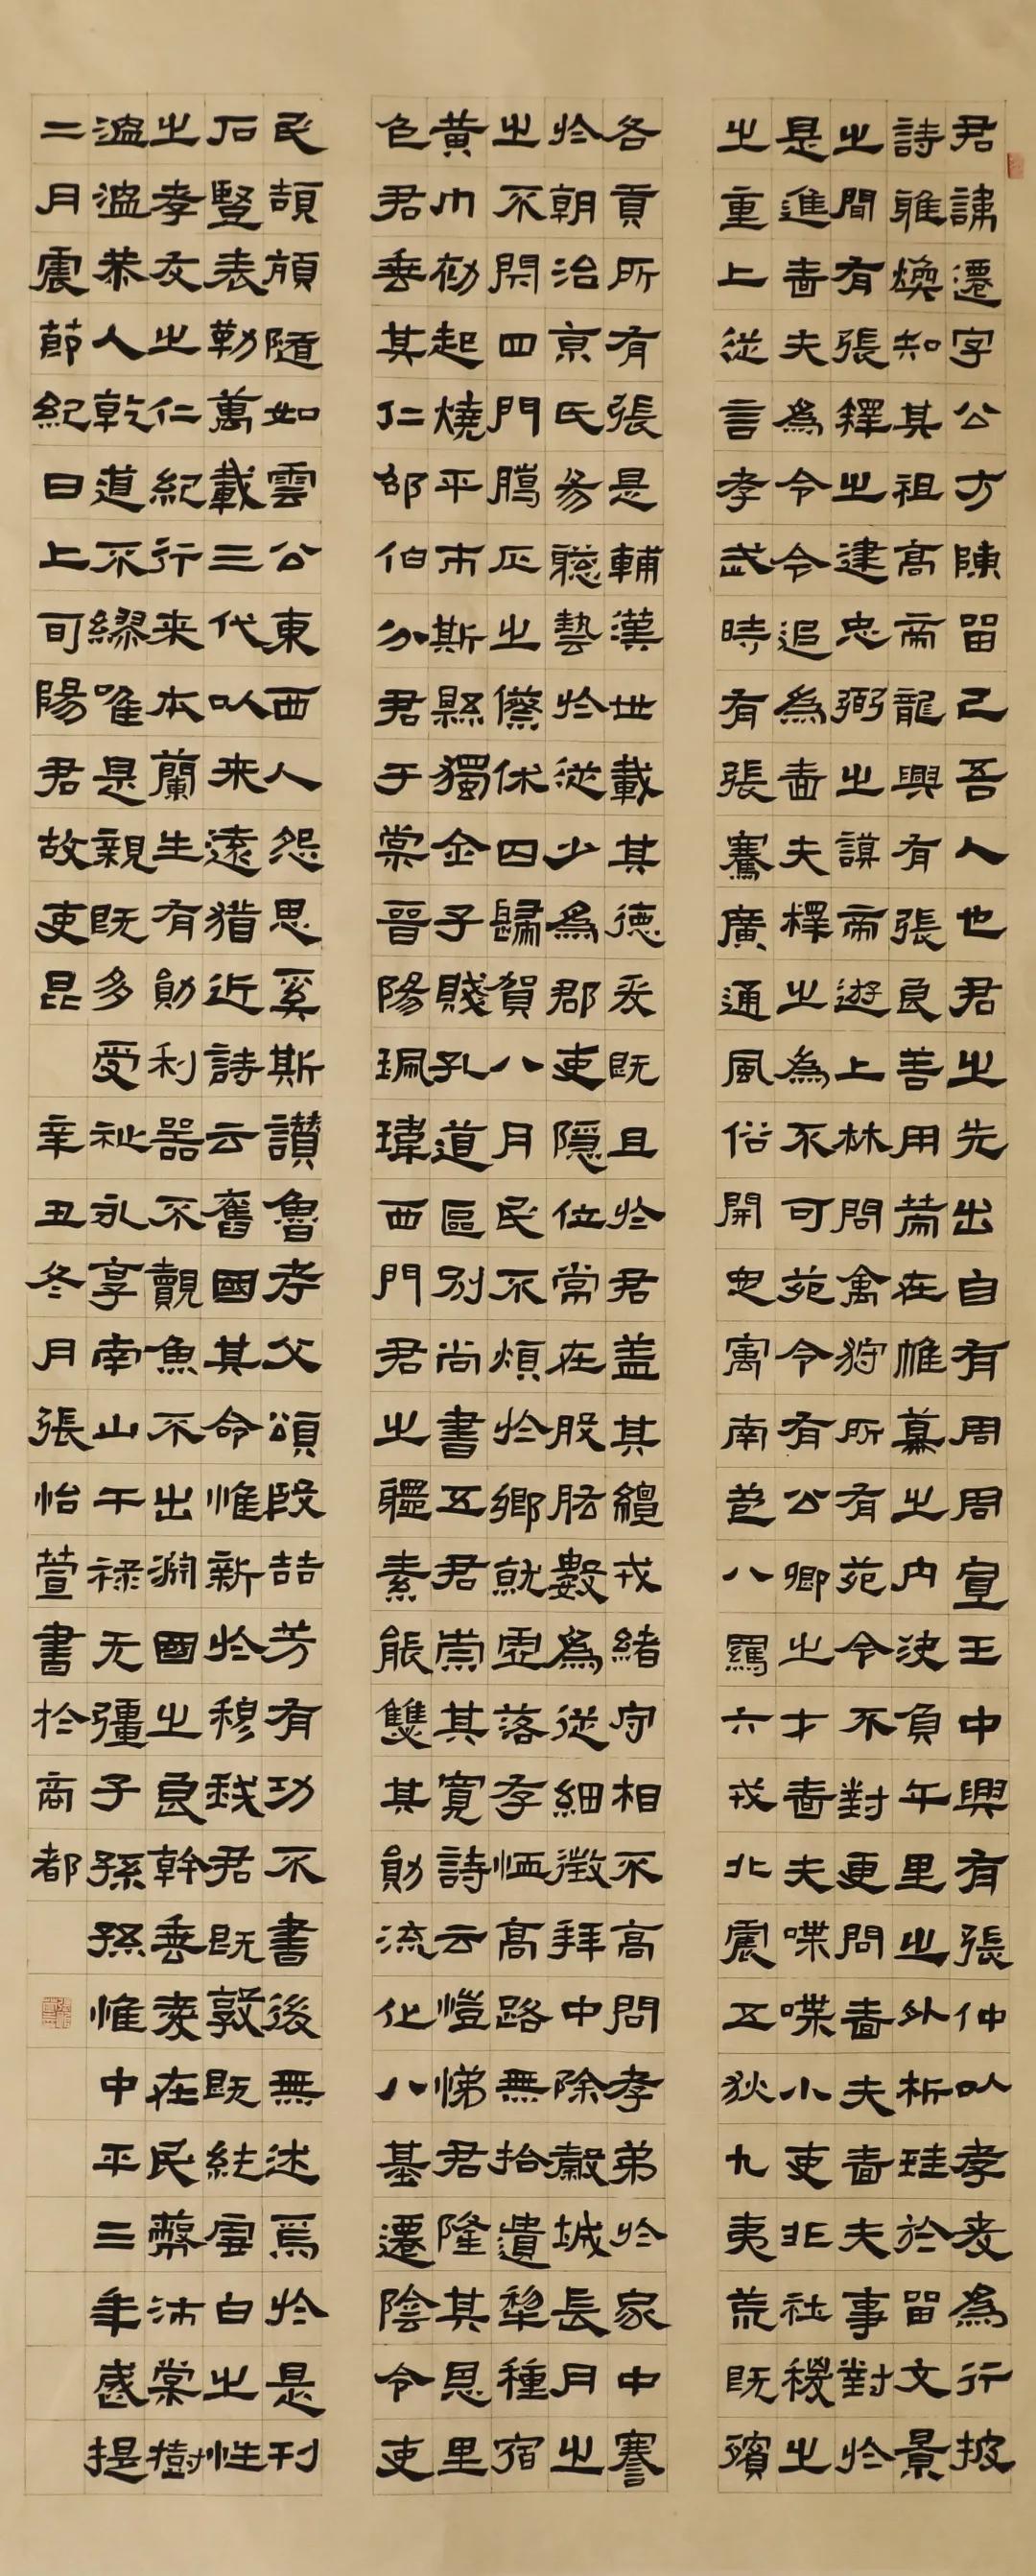 君諱遷字公方陳留己吾人也君之先出自有周周宣王中興有張仲以孝友為行披
詩雅煥知其祖高帝龍興有張良善用籌在帷幕之内決負午里之外析珪於留文景
之間有張釋之建忠弼之謨帝遊上林問禽狩所有苑令不對更問嗇夫嗇夫事對於
是進嗇夫為令令退為嗇夫釋之為不可苑令有公卿之才嗇夫喋喋小吏非社稷之
之重上從言孝武時有張騫廣通風俗開定寓南苞八蠻六戎北震五狄九夷荒既殯
各貢所有張是輔漢世載其德爰既且於君蓋其纏戎緒守相不高問孝弟於家中謇
於朝治京氏易聰藝於從少為郡吏隱位常在股肱數為從細徵拜中除穀城長月之
之不閉四門臘正之僚休囚歸賀八月民不煩於鄉就虛落存恤高路無拾遺犁種宿
黃巾初起燒平市斯縣獨金子賤孔道區別尚書五君崇其寬詩云愷悌君隆其恩里
色君垂其仁邵伯分君于棠晉陽珮瑋西門君之韁素能雙其勛流化八基遷陰令吏
民頡頏隨如雲公東西人怨思奚斯讚魯孝父頌殷喆芳有功不書後無述焉於是刊
石豎表勒萬載三代以来遠猶近詩云舊國其命惟新於穆我君既敦既純雪白之性
之孝友之仁紀行来本蘭生有勛利器不覿魚不出淵國之良幹垂愛在民幣沛棠樹
溫溫恭人乾道不繆唯是親既多受祉永享南山干祿无疆子孫孫惟中平三年感提
二月震節紀日上旬陽君故吏昆　辛丑冬月張怡萱書於商都